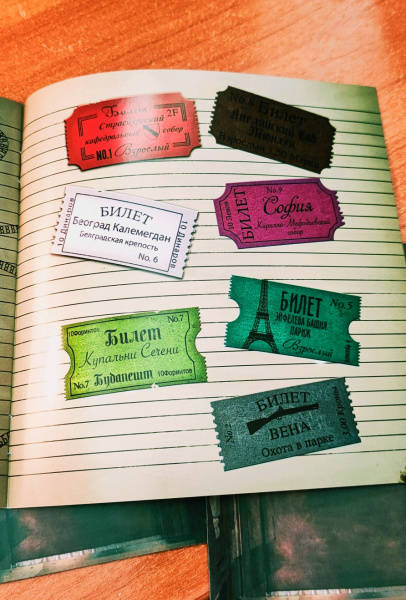 Билет 2F
Страсбургский
кафедральный собор
NO.1 Взрослый
No.8 Билет
Английский
БИЛЕТ
Београд Калемегдан
Белградская крепость
No. 6
10 Динаров
10 Динаров
No.9
10 Левов
БИЛЕТ
София
Кирилло-Мефодиевский
собор
10Форинтов No.7
Билет
Купальни Сечени
No.7 Будапешт 10Форинтов
БИЛЕТ No.5
ЭЙФЕЛЕВА БАШНЯ
ПАРИЖ
Взрослый
No.2
БИЛЕТ
ВЕНА
Охота в парке